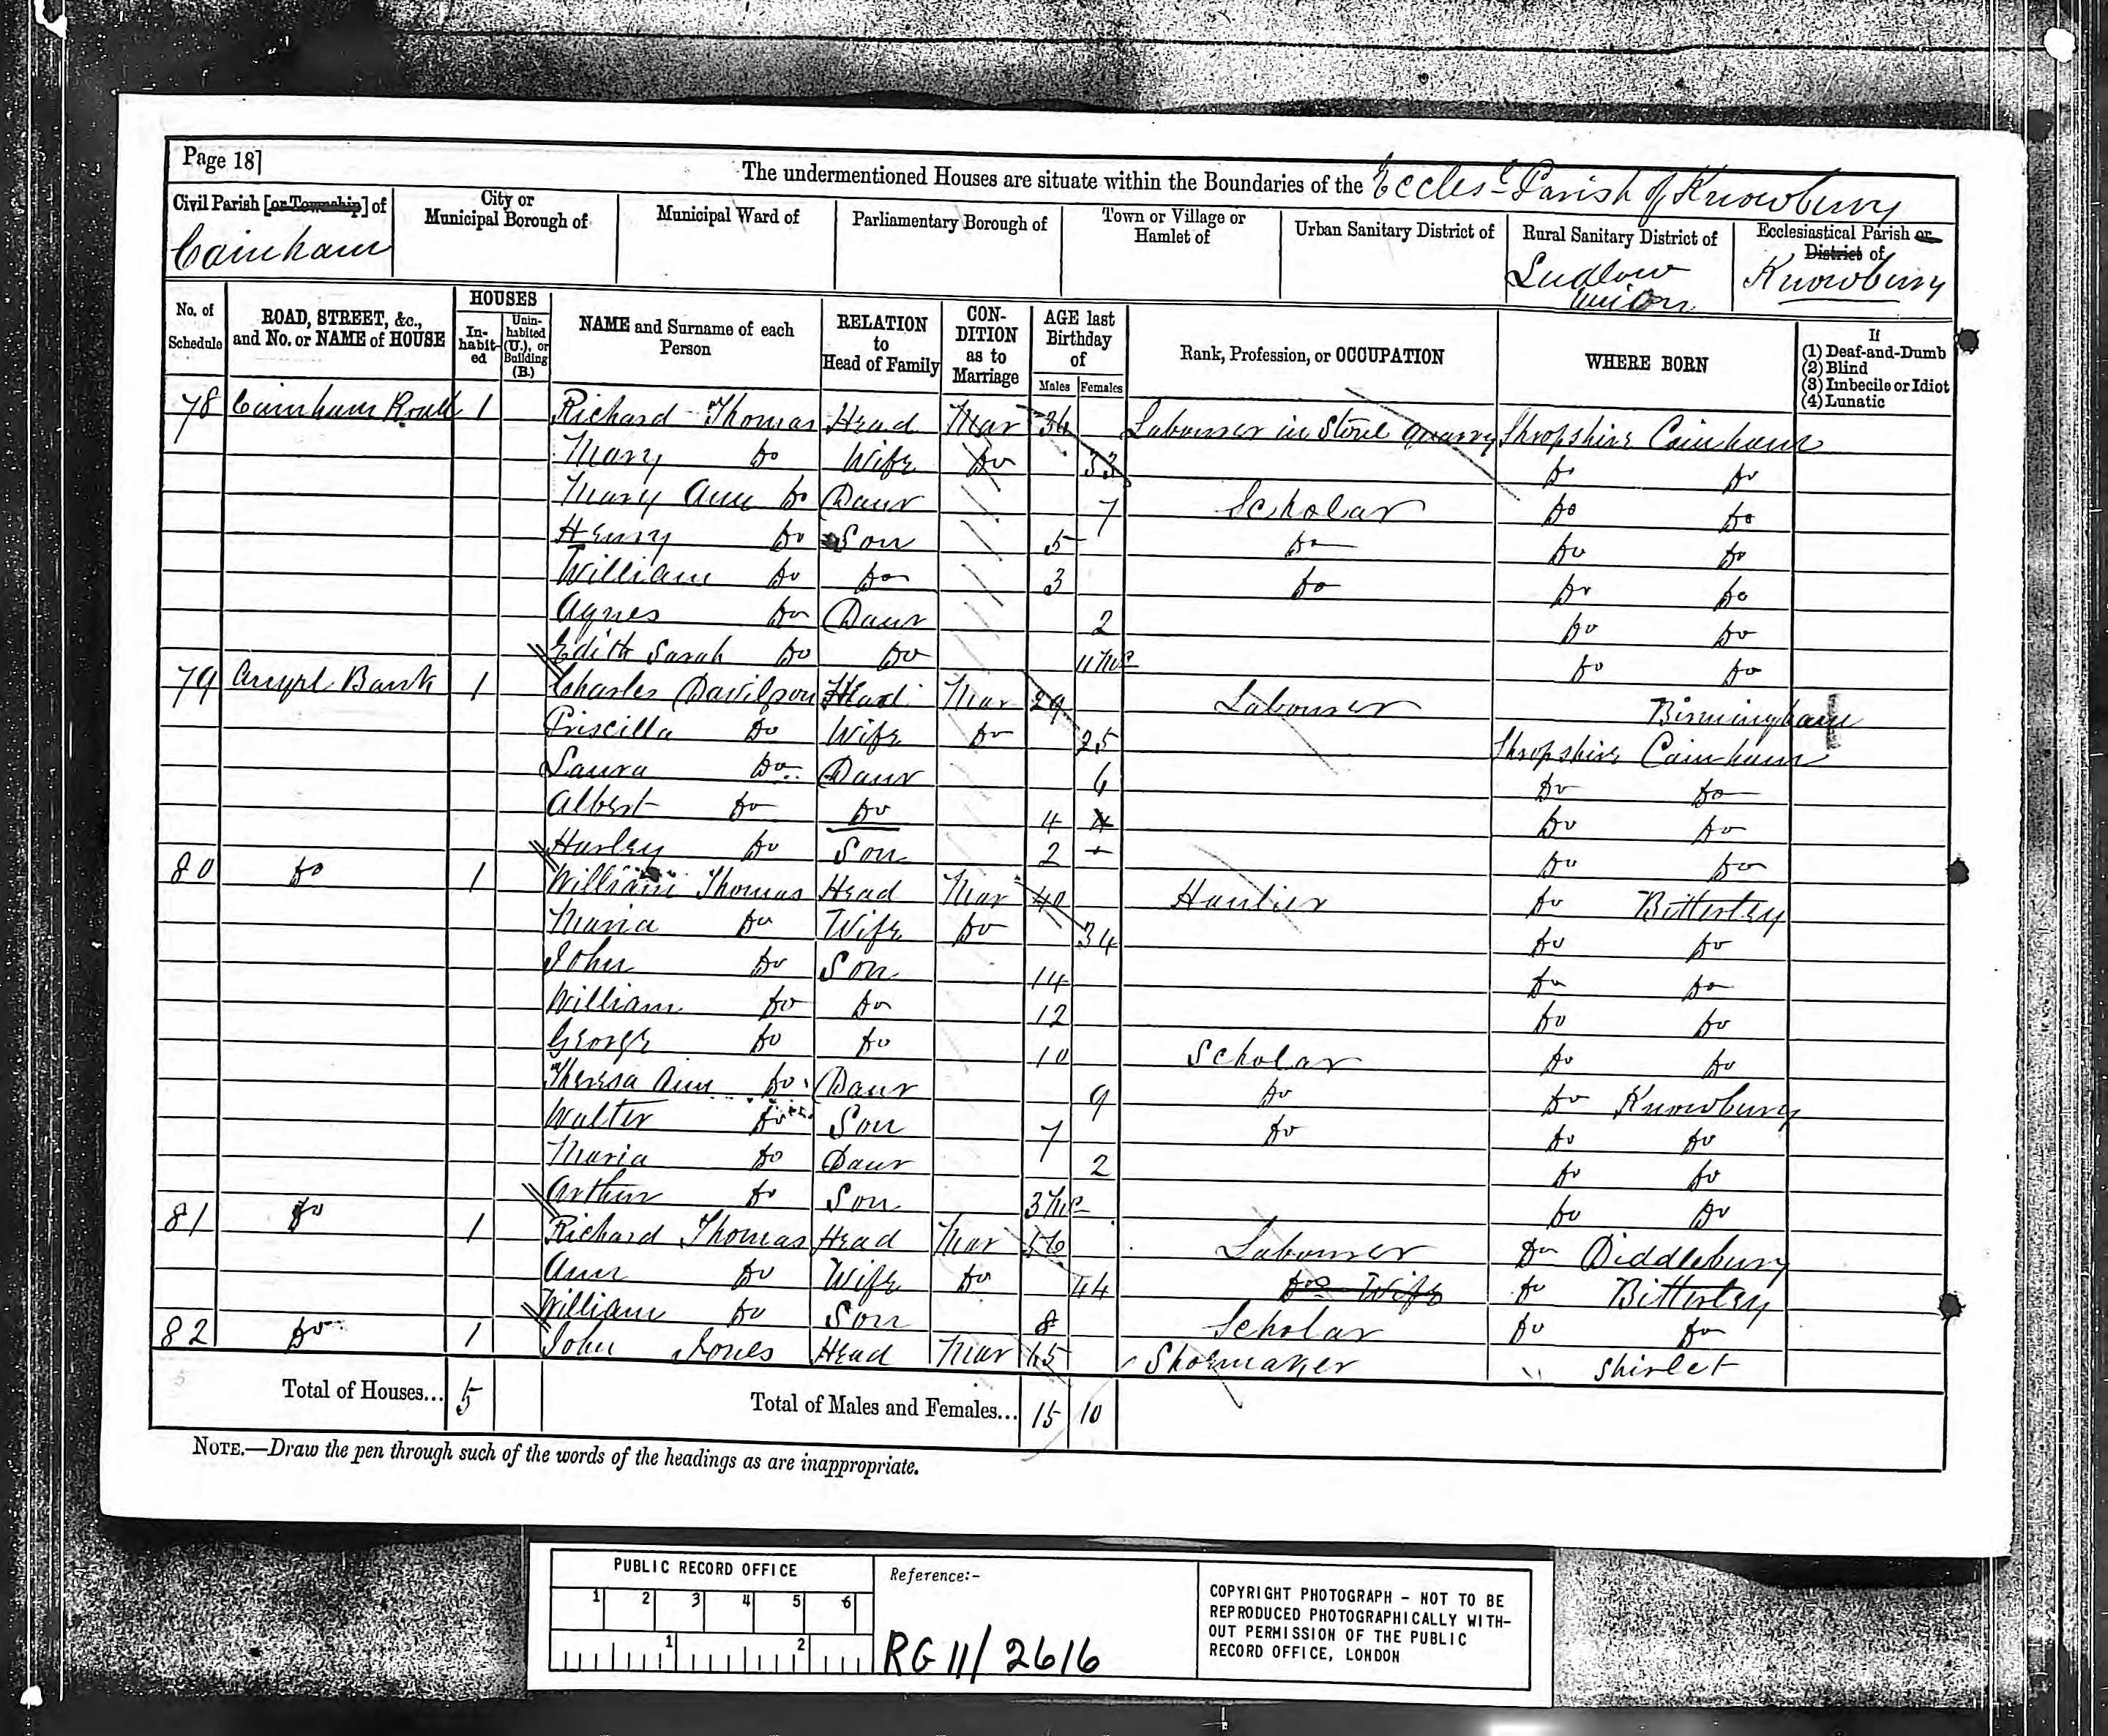 Page 18]
The undermentioned Houses are situate within the Boundaries of the Eccles. Parish of Knowbury
Civil Parish [or Township] of
Cainham
City or
Municipal Borough of
Municipal Ward of
Parliamentary Borough of
Town or Village or
Hamlet of
Urban Sanitary District of
Rural Sanitary District of
Ludlow
Union
Ecclesiastical Parish or
District of
Knowbury
No. of
Schedule
ROAD, STREET, &c.,
and No. or NAME of HOUSE
HOUSES
In-
habit-
ed
Unin-
habited
(U.), or
Building
(B.)
NAME and Surname of each
Person
RELATION
to
Head of Family
CON-
DITION
as to
Marriage
AGE last
Birthday
of
Males Females
Rank, Profession, or OCCUPATION
WHERE BORN
If
(1) Deaf-and-Dumb
(2) Blind
(3) Imbecile or Idiot
(4) Lunatic
78 Cainham 1 Richard Thomas Head Mar Labourer in Stone Quarry Shropshire Cainham
Mary Do Wife Do 33 Do Do
Mary Ann Do Daur 7 Scholar Do Do
Henry Do Son 5 Do Do Do
William Do Do 3 Do Do Do
Agnes Do Daur 2 Do Do
Edith Sarah Do Do 11 Mos Do Do
79 Bank 1 Charles Head Mar 29 Labourer Birmingham
Priscilla Do Wife Do 25 Shropshire Cainham
Laura Do Daur 6 Do Do
Albert Do Do 4 4 Do Do
Harley Do Son 2 Do Do
80 Do 1 William Thomas Head Mar 40 Haulier Do Bitterley
Maria Do Wife Do 34 Do Do
John Do Son 14 Do Do
William Do Do 12 Do Do
George Do Do 10 Scholar Do Do
Theresa Ann Do Daur 9 Do Do Knowbury
Walter Do Son 7 Do Do Do
Maria Do Daur 2 Do Do
Arthur Do Son 3 Mos Do Do
81 Do 1 Richard Thomas Head Mar 56 Labourer Do Diddlebury
Ann Do Wife Do 44 Do Wife Do Bitterley
William Do Son 8 Scholar Do Do
82 Do 1 John Jones Head Mar Shoemaker " Shirlet
Total of Houses... 5
Total of Males and Females... 15 10
NOTE.—Draw the pen through such of the words of the headings as are inappropriate.
PUBLIC RECORD OFFICE
1 2 3 4 5 6
1 2
Reference:-
RG 11/2616
COPYRIGHT PHOTOGRAPH - NOT TO BE
REPRODUCED PHOTOGRAPHICALLY WITH-
OUT PERMISSION OF THE PUBLIC
RECORD OFFICE, LONDON